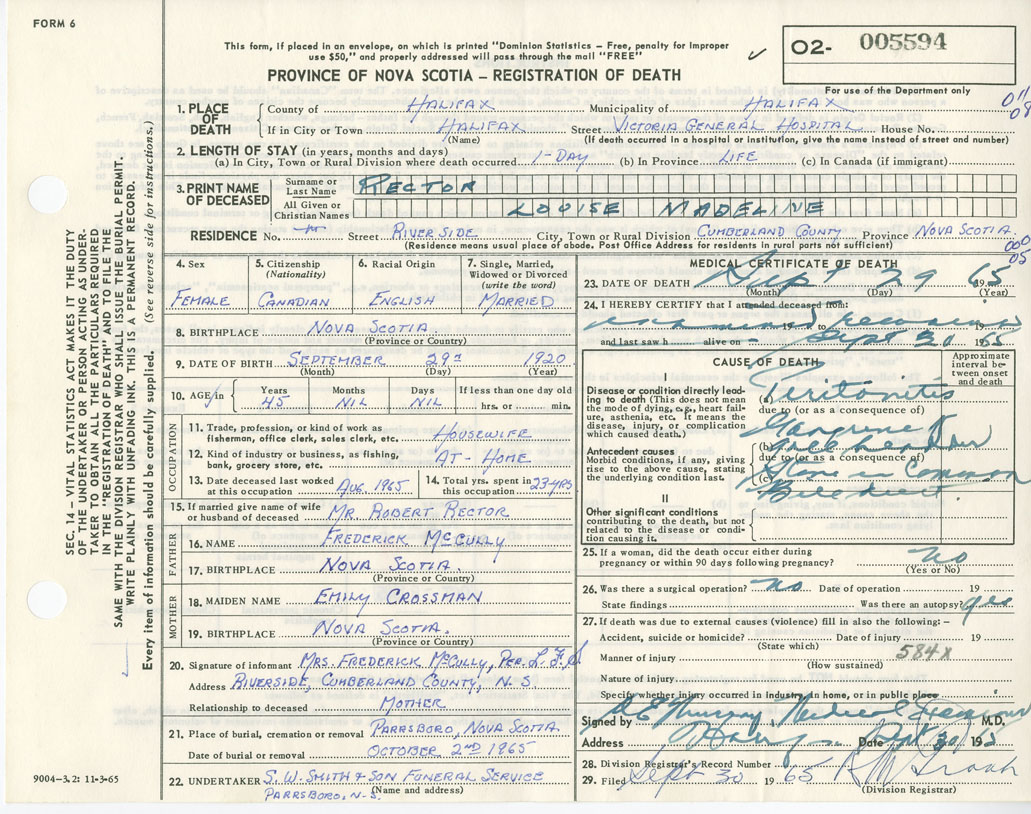 FORM 6
This form, if placed in an envelope, on which is printed "Dominion Statistics – Free, penalty for improper
use $50," and properly addressed will pass through the mail "FREE"
PROVINCE OF NOVA SCOTIA – REGISTRATION OF DEATH
02- 005594
For use of the Department only
011
08
1. PLACE OF DEATH
County of HALIFAX Municipality of HALIFAX
If in City or Town HALIFAX Street VICTORIA GENERAL HOSPITAL House No.
(Name) (If death occurred in a hospital or institution, give the name instead of street and number)
2. LENGTH OF STAY (in years, months and days)
(a) In City, Town or Rural Division where death occurred 1-DAY (b) In Province LIFE (c) In Canada (if immigrant)
3. PRINT NAME OF DECEASED
Surname or Last Name RECTOR
All Given or Christian Names LOUISE MADELINE
RESIDENCE No. Street RIVERSIDE City, Town or Rural Division CUMBERLAND COUNTY Province NOVA SCOTIA.
(Residence means usual place of abode. Post Office Address for residents in rural parts not sufficient)
000
05
4. Sex
FEMALE
5. Citizenship (Nationality)
CANADIAN
6. Racial Origin
ENGLISH
7. Single, Married, Widowed or Divorced (write the word)
MARRIED
8. BIRTHPLACE NOVA SCOTIA.
(Province or Country)
9. DATE OF BIRTH SEPTEMBER 29th 1920
(Month) (Day) (Year)
10. AGE in
Years 45
Months NIL
Days NIL
If less than one day old
hrs. or min.
OCCUPATION
11. Trade, profession, or kind of work as fisherman, office clerk, sales clerk, etc. HOUSEWIFE
12. Kind of industry or business, as fishing, bank, grocery store, etc. AT-HOME
13. Date deceased last worked at this occupation AUG. 1965
14. Total yrs. spent in this occupation 23-YRS
15. If married give name of wife or husband of deceased MR. ROBERT RECTOR
FATHER
16. NAME FREDERICK McCULLY
17. BIRTHPLACE NOVA SCOTIA.
(Province or Country)
MOTHER
18. MAIDEN NAME EMILY CROSSMAN
19. BIRTHPLACE NOVA SCOTIA.
(Province or Country)
20. Signature of informant MRS. FREDERICK McCULLY, PER. L.F.S.
Address RIVERSIDE, CUMBERLAND COUNTY, N.S
Relationship to deceased MOTHER
21. Place of burial, cremation or removal PARRSBORO, NOVA SCOTIA.
Date of burial or removal OCTOBER 2ND 1965
22. UNDERTAKER S.W. SMITH & SON FUNERAL SERVICE
PARRSBORO, N.S. (Name and address)
MEDICAL CERTIFICATE OF DEATH
23. DATE OF DEATH Sept 29 1965
(Month) (Day) (Year)
24. I HEREBY CERTIFY that I attended deceased from:
19 to 19
and last saw h alive on Sept 30 1965
CAUSE OF DEATH
Approximate interval between onset and death
I
Disease or condition directly leading to death (This does not mean the mode of dying, e.g., heart failure, asthenia, etc. It means the disease, injury, or complication which caused death.)
(a) Peritonitis
due to (or as a consequence of)
Gangrene of
Antecedent causes
Morbid conditions, if any, giving rise to the above cause, stating the underlying condition last.
(b) Gall bladder
due to (or as a consequence of)
(c) Stone in Common
Bile duct.
II
Other significant conditions contributing to the death, but not related to the disease or condition causing it.
25. If a woman, did the death occur either during pregnancy or within 90 days following pregnancy? no
(Yes or No)
26. Was there a surgical operation? no Date of operation 19
State findings Was there an autopsy? yes
27. If death was due to external causes (violence) fill in also the following: –
Accident, suicide or homicide? Date of injury 19
(State which)
Manner of injury 584X
(How sustained)
Nature of injury
Specify whether injury occurred in industry, in home, or in public place
Signed by Medical Examiner M.D.
Address Date Sept 30 1965
28. Division Registrar's Record Number
29. Filed Sept 30 1965
(Division Registrar)
SEC. 14 – VITAL STATISTICS ACT MAKES IT THE DUTY
OF THE UNDERTAKER OR PERSON ACTING AS UNDER-
TAKER TO OBTAIN ALL THE PARTICULARS REQUIRED
IN THE "REGISTRATION OF DEATH" AND TO FILE THE
SAME WITH THE DIVISION REGISTRAR WHO SHALL ISSUE THE BURIAL PERMIT.
WRITE PLAINLY WITH UNFADING INK. THIS IS A PERMANENT RECORD.
Every item of information should be carefully supplied. (See reverse side for instructions.)
9004–3.2: 11-3-65